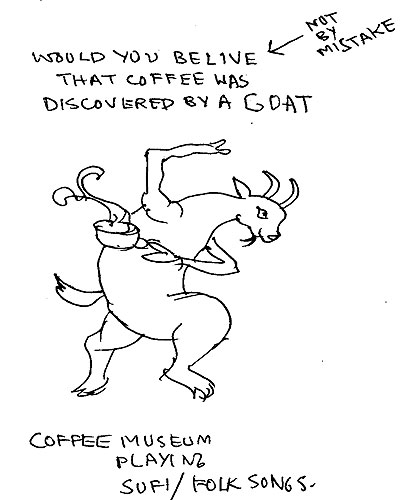 WOULD YOU BELIVE
THAT COFFEE WAS
DISCOVERED BY A GOAT
NOT
BY
MISTAKE
COFFEE MUSEUM
PLAYING
SUFI/FOLK SONGS.